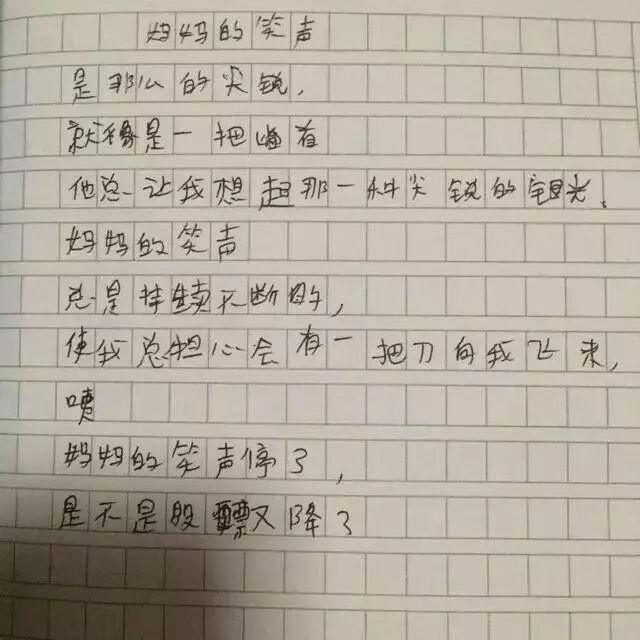 妈妈的笑声
是那么的尖锐，
就像是一把
他总让我想起那一种尖锐的目光、
妈妈的笑声
总是持续不断的，
使我总担心会有一把刀向我飞来，
咦
妈妈的笑声停了，
是不是股票又降了